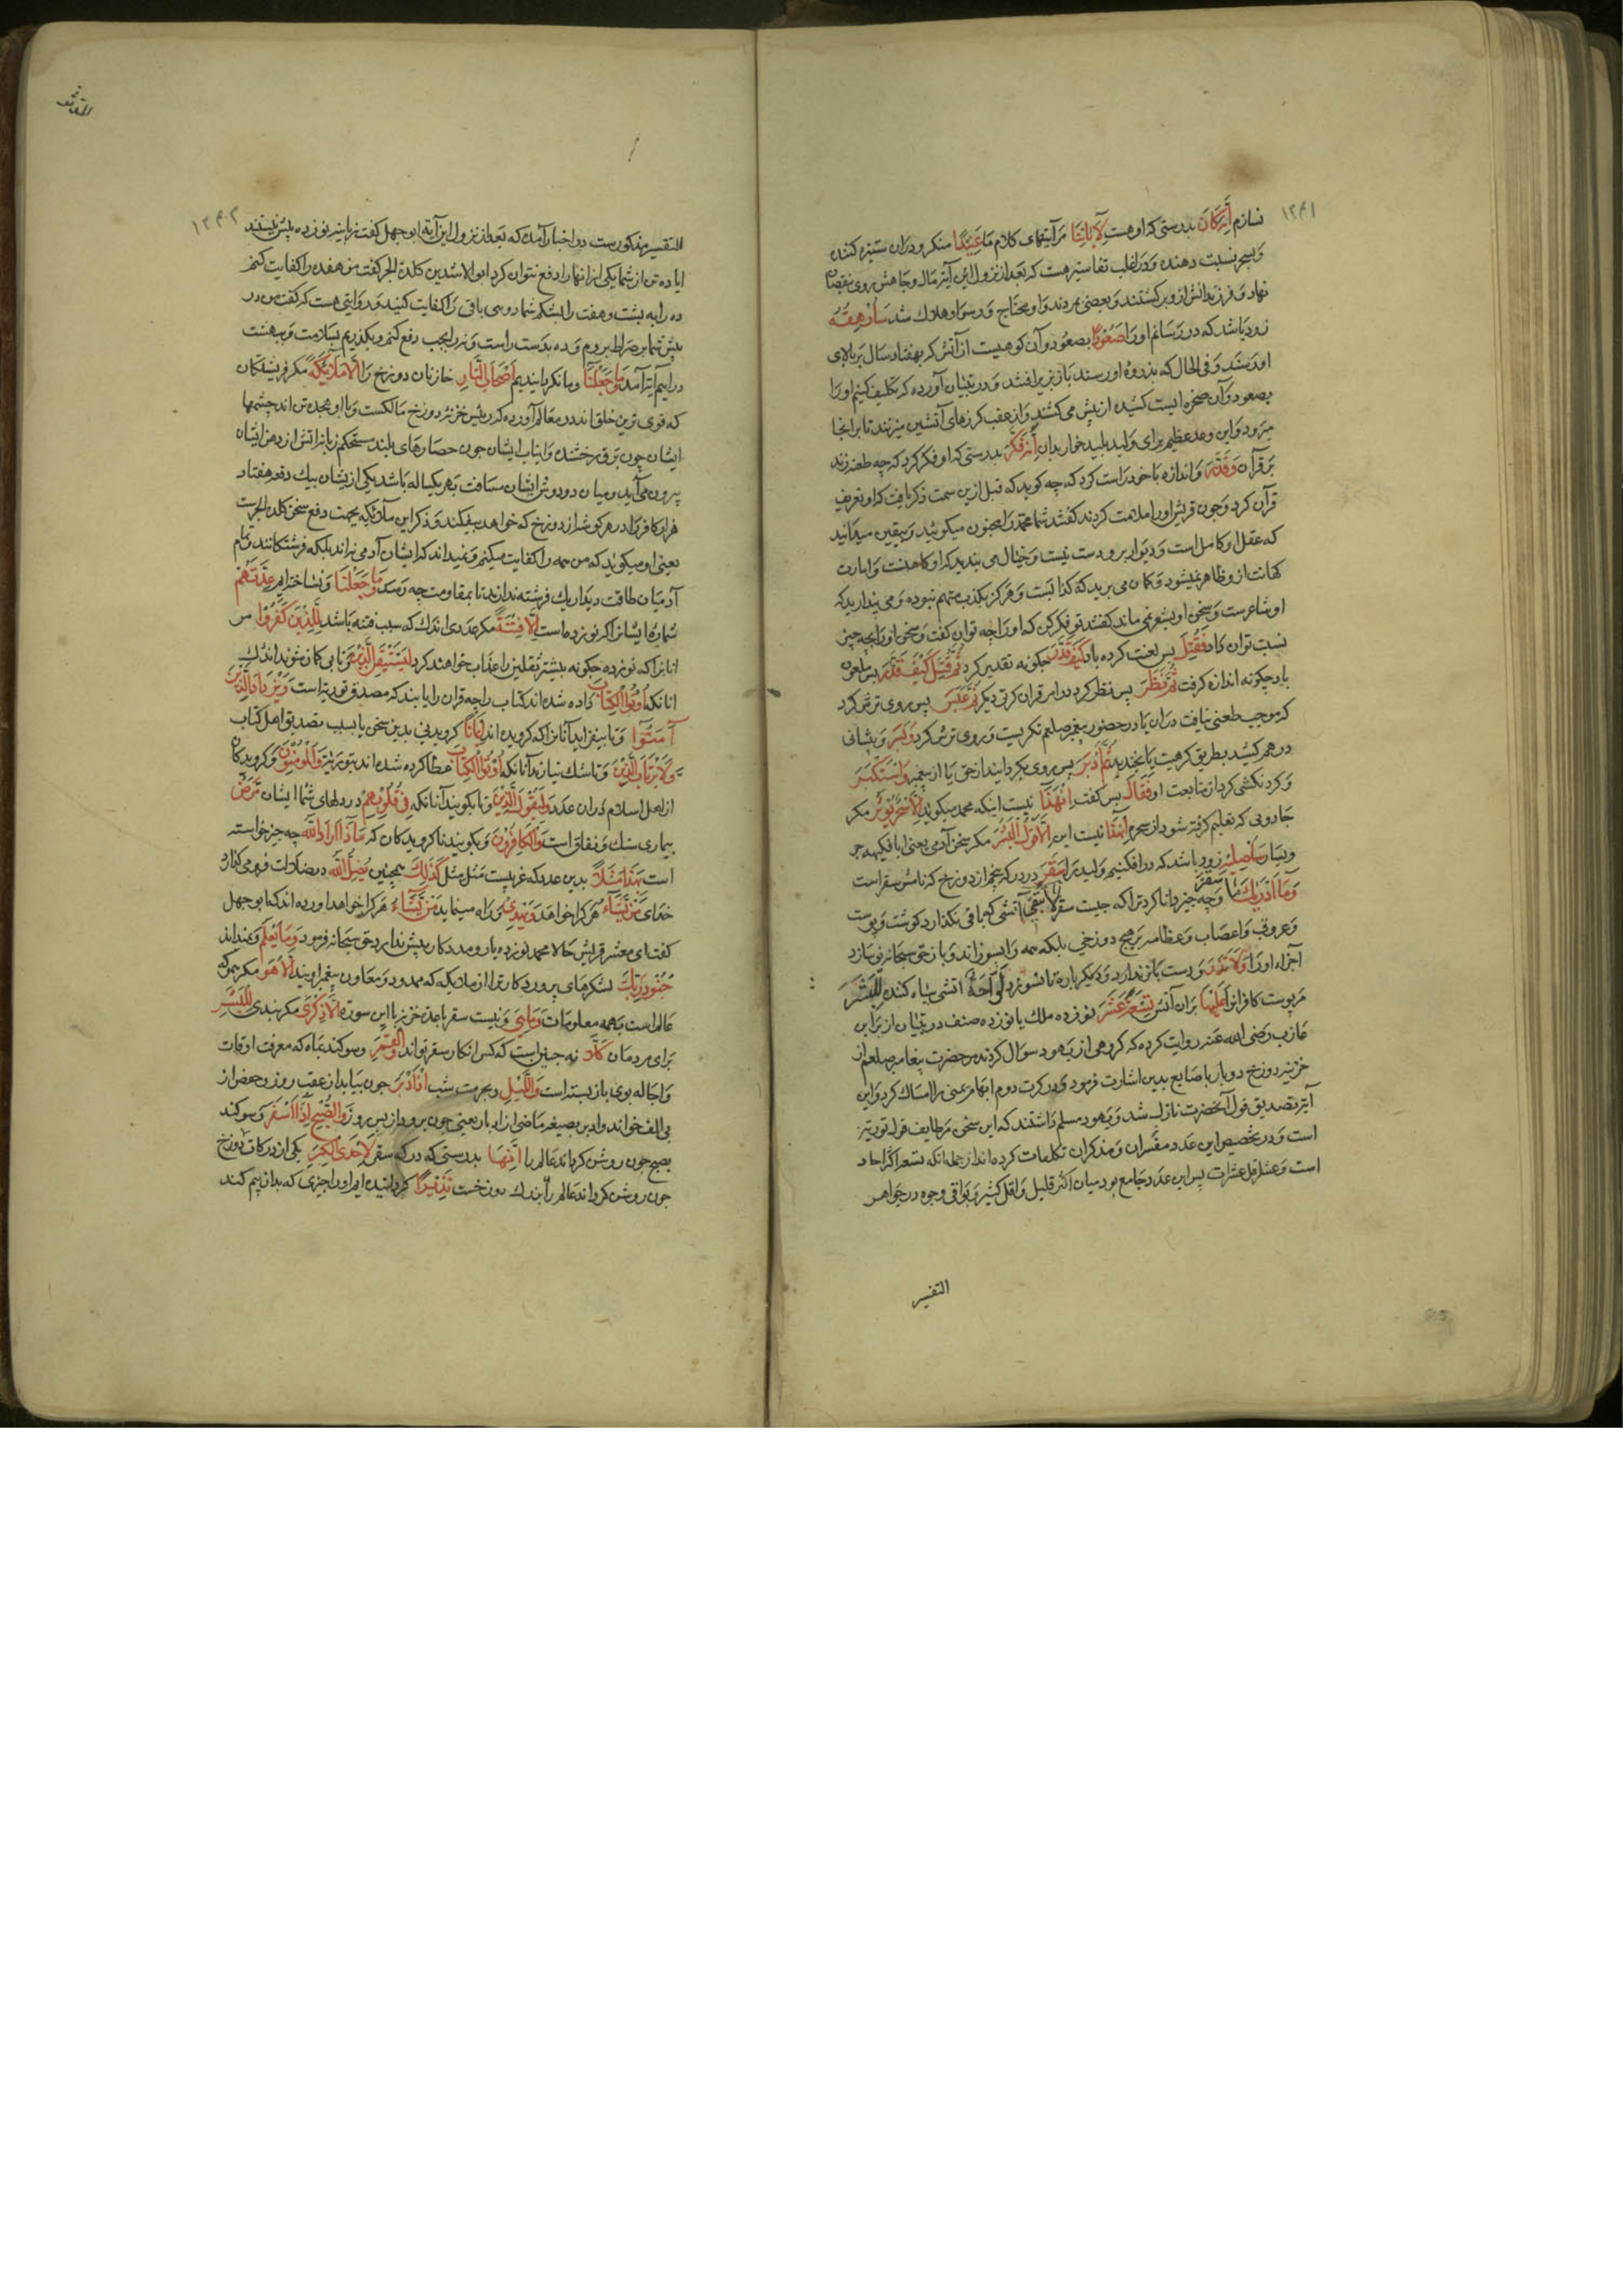 ۱۲۴۱
نسازم إِنَّهُ كَانَ بدرستی که او هست لِآيَاتِنَا مر آیتهای کلام ما عَنِيدًا منکر و دران ستیزه کننده
و بسحر نسبت دهنده و در اغلب تفاسیر هست که بعد از نزول این آیه مال و جاهش روی بنقصان
نهاد و فرزندانش ازو برکشتند و بعضی بمردند و او محتاج و رسوا و هلاک شد سَأُرْهِقُهُ
زود باشد که در رسانم او را صَعُودًا بصعود و آن کوهیست از آتش که بهفتاد سال بر بالای
او رسند و فی الحال که بذروه او رسند باز بزیر افتد و در تبیان آورده که تکلیف کنیم او را
بصعود و آن صخره ایست کشیده از پیش می کشند و از عقب کرزهای آتشین میزنند تا بر انجا
میرود و این وعید عظیم برای ولید پلید بدان إِنَّهُ فَكَّرَ بدرستی که او فکر کرد که چه طعنه زند
بر قرآن وَقَدَّرَ و اندازه با خود راست کرد که چه کوید که قبل ازین سمت ذکر یافت که او تعریف
قرآن کرد و چون قریش او را ملامت کردند کفتند شما محمد را مجنون میکوئید و بیقین میدانید
که عقل او کامل است و دیوانه بر و دست نیست و خیال می بندید که او کاهنست و امارت
کهانت ازو ظاهر نمیشود و کمان می برید که کذابست و هرکز بکذب متهم نبوده و می پندارید که
او شاعرست و سخن او بشعر نمی ماند کفتند تو فکر کن که او را چه توان کفت و سخن او را بچه چیز
نسبت توان داد فَقُتِلَ پس لعنت کرده باد كَيْفَ قَدَّرَ چکونه تقدیر کرد ثُمَّ قُتِلَ كَيْفَ قَدَّرَ پس ملعون
باد چکونه اندازه کرفت ثُمَّ نَظَرَ پس نظر کرد در امر قرآن کرتی دیکر ثُمَّ عَبَسَ پس روی ترش کرد
که موجب طعنی نیافت دران یا در حضور پیغمبر صلعم نکریست و روی ترش کرد وَبَسَرَ و پیشانی
در هم کشید بطریق کرهیت ثُمَّ أَدْبَرَ پس روی بکردانید از حق یا از پیغمبر وَاسْتَكْبَرَ
و کردنکشی کرد از متابعت او فَقَالَ پس کفت إِنْ هَذَا نیست اینکه محمد میکوید إِلَّا سِحْرٌ يُؤْثَرُ مکر
جادویی که تعلیم کرفته شود از سحره إِنْ هَذَا نیست این إِلَّا قَوْلُ الْبَشَرِ مکر سخن آدمی یعنی ابا فکیهه جبر
و یسار سَأُصْلِيهِ زود باشد که درافکنیم ولید را سَقَرَ در درکه پنجم از دوزخ که نامش سقر است
وَمَا أَدْرَاكَ مَا سَقَرُ و چه چیز دانا کرد ترا که چیست سقر لَا تُبْقِي آتشی که باقی نکذارد کوشت و پوست
و عروق و اعصاب و عظام بر هیچ دوزخی بلکه همه را بسوزاند و باز حق سبحانه نو سازد
اجزاء او را وَلَا تَذَرُ و دست باز ندارد و دیکر باره تا نسوزد لَوَّاحَةٌ آتشی سیاه کننده لِّلْبَشَرِ
مر پوست کافرانرا عَلَيْهَا بران آتش تِسْعَةَ عَشَرَ نوزده ملک یا نوزده صنف در تبیان از براء بن
عازب رضی الله عنه روایت کرده که کروهی از یهود سوال کردند مر حضرت پیغامبر صلعم از
خزنه دوزخ دو بار باصابع بدین اشارت فرمود و در کرت دوم ابهام یمنی را امساک کرد و این
آیه تصدیق قول آنحضرت نازل شد و یهود مسلم داشتند که این سخن مطابق قول توریة
است و در تخصیص این عدد مفسران و مذکران تکلمات کرده اند از جمله انکه تسعه اکثر احاد
است و عشر اقل عشرات پس این عدد جامع بود میان اکثر قلیل و اقل کثیر و باقی وجوه در جواهر
التفسیر
۱۲۴۲
التفسیر مذکورست در اخبار آمده که بعد از نزول این آیه ابوجهل کفت زبانیه نوزده بیش نیستند
ایا ده تن از شما یکی از انها را دفع نتوان کرد ابو الاشدین کلدة الجمحی کفت من هفده را کفایت کنم
ده را به پشت و هفت را بشکم شما دو تای باقی را کفایت کنید و در روایتی هست که کفت من در
پیش شما بر صراط بروم و ده بدست راست و نه را بچپ دفع کنم و بکذریم بسلامت و به بهشت
در آییم آیه آمد وَمَا جَعَلْنَا و ما نکردانیدیم أَصْحَابَ النَّارِ خازنان دوزخ را إِلَّا مَلَائِكَةً مکر فریشتکان
که قوی ترین خلق اند در معالم آورده که رئیس خزنه دوزخ مالکست و با او هجده تن اند چشمها
ایشان چون برق رخشنده و انیاب ایشان چون حصارهای بلند مستحکم زبانه آتش از دهن ایشان
بیرون می آید و میان دو دوش ایشان مسافت یکساله باشد یکی ازیشان بیک دفعه هفتاد
هزار کافر را در هر کوشه از دوزخ که خواهد بیفکند و ذکر این ملائکه بجهت دفع سخن کلدة الجمحیست
یعنی او میکوید که من همه را کفایت میکنم و نمیداند که ایشان آدمی نه اند بلکه فرشتکانند و تمام
آدمیان طاقت دیدار یک فرشته ندارند تا بمقاومت چه رسد وَمَا جَعَلْنَا و نساخته ایم عِدَّتَهُمْ
شماره ایشان را که نوزده است إِلَّا فِتْنَةً مکر عددی اندک که سبب فتنه باشد لِّلَّذِينَ كَفَرُوا مر
انانرا که نوزده چکونه بیشتر ثقلین را عذاب خواهند کرد لِيَسْتَيْقِنَ الَّذِينَ تا بی کمان شوند
انانکه أُوتُوا الْكِتَابَ داده شده اند کتاب را چه قرآن را یابند که مصدق توریة است وَيَزْدَادَ الَّذِينَ
آمَنُوا و تا بیفزاید آنانرا که کرویده اند إِيمَانًا کرویدنی بدین سخن یا بسبب تصدیق اهل کتاب
وَلَا يَرْتَابَ الَّذِينَ و تا شک نیارند آنانکه أُوتُوا الْكِتَابَ عطا کرده شده اند بتوریة وَالْمُؤْمِنُونَ و کرویدکان
از اهل اسلام دران عدد وَلِيَقُولَ الَّذِينَ و تا بکویند آنانکه فِي قُلُوبِهِم در دلهای ایشان مَّرَضٌ
بیماری شک و نفاق است وَالْكَافِرُونَ و بکویند ناکرویدکان که مَاذَا أَرَادَ اللَّهُ چه چیز خواسته
است بِهَذَا مَثَلًا بدین عدد که غریبست مثل مثل كَذَلِكَ همچنین يُضِلُّ اللَّهُ در ضلالت فرو میکذارد
خدای مَن يَشَاءُ هر کرا خواهد وَيَهْدِي و راه مینماید مَن يَشَاءُ هر کرا خواهد آورده اند که ابوجهل
کفت ای معشر قریش حالا محمد نوزده یار و مددکار بیش ندارد حق سبحانه فرمود وَمَا يَعْلَمُ و نمیداند
جُنُودَ رَبِّكَ لشکرهای پروردکار ترا از ملائکه که ممد و معاون پیغمبراویند إِلَّا هُوَ مکر هم او که
عالم است بهمه معلومات وَمَا هِيَ و نیست سقر یا عده خزنه یا این سوره إِلَّا ذِكْرَى مکر پندی لِلْبَشَرِ
برای مردمان كَلَّا نه چنین است که کس انکار سقر تواند وَالْقَمَرِ و سوکند بماه که معرفت اوقات
و اجال بوی باز بسته است وَاللَّيْلِ و بحرمت شب إِذْ أَدْبَرَ چون بیاید از عقب روز و حفص از
بی الف خواند و ادبر بصیغه ماضی از ادبار یعنی چون برود از پس روز وَالصُّبْحِ إِذَا أَسْفَرَ و سوکند
بصبح چون روشن کرداند عالم را إِنَّهَا بدرستی که درکه سقر لَإِحْدَى الْكُبَرِ یکی از درکات دوزخ
نَذِيرًا کردانیده ایم او را چیزی که بدان بیم کنند